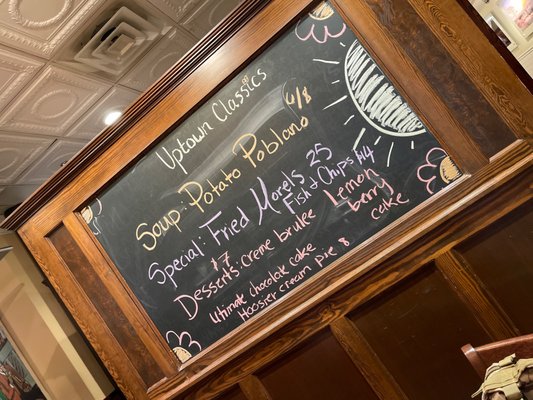 Uptown Classics
Soup: Potato Poblano 6/8
Special: Fried Morels 25
Fish & Chips $14
$7
Desserts: Creme brulee Lemon berry cake
Ultimate chocolate cake
Hoosier cream pie 8